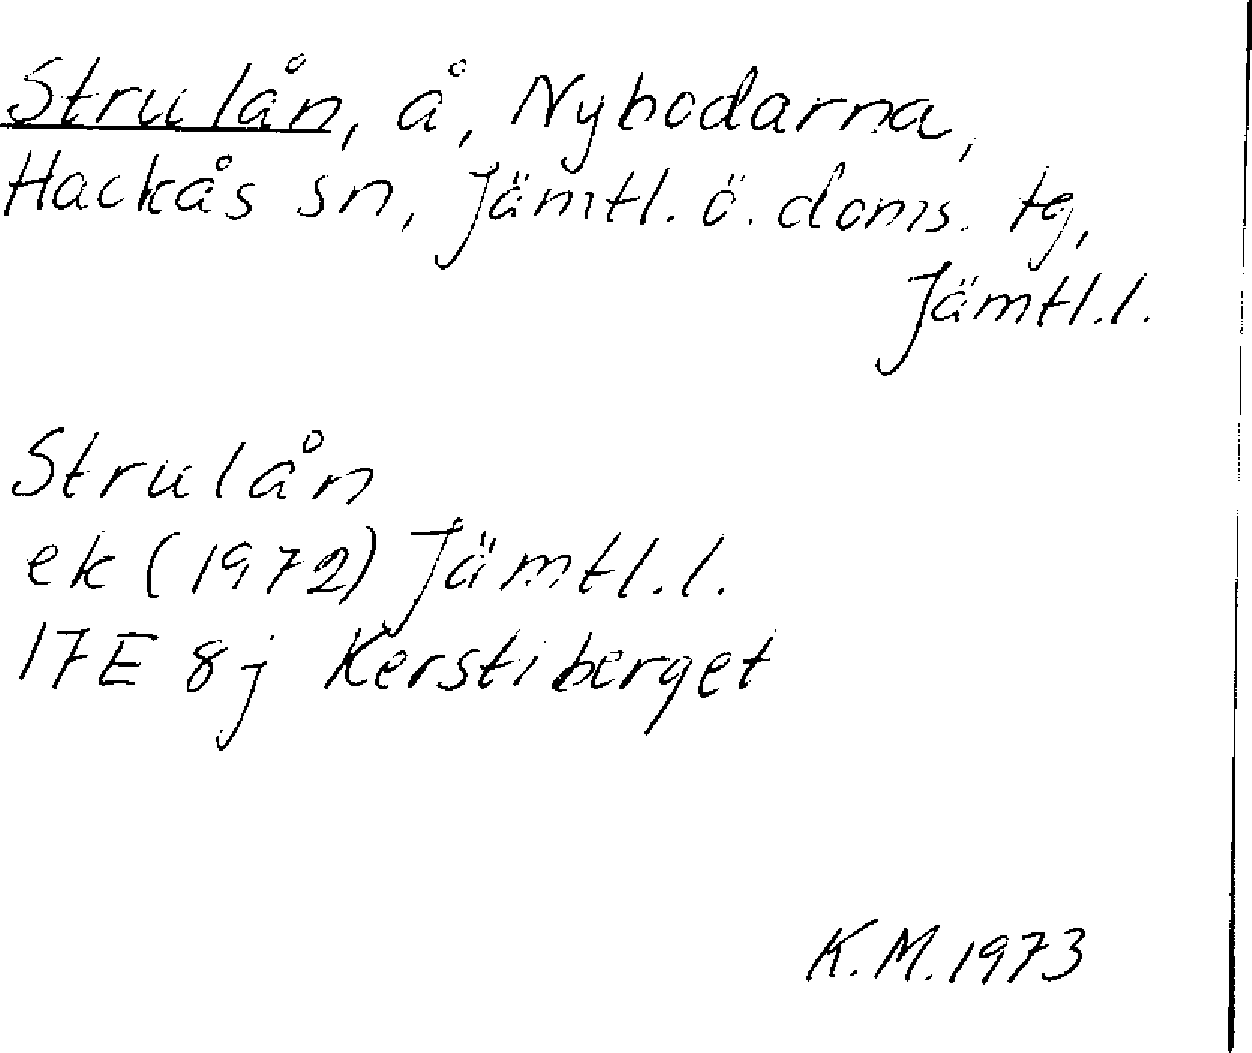 Strulån, å, Nybodarna,
Hackås sn, Jämtl. ö. doms. tg,
Jämtl.l.
Strulån
ek (1972) Jämtl.l.
17E 8j Kerstiberget
K.M. 1973